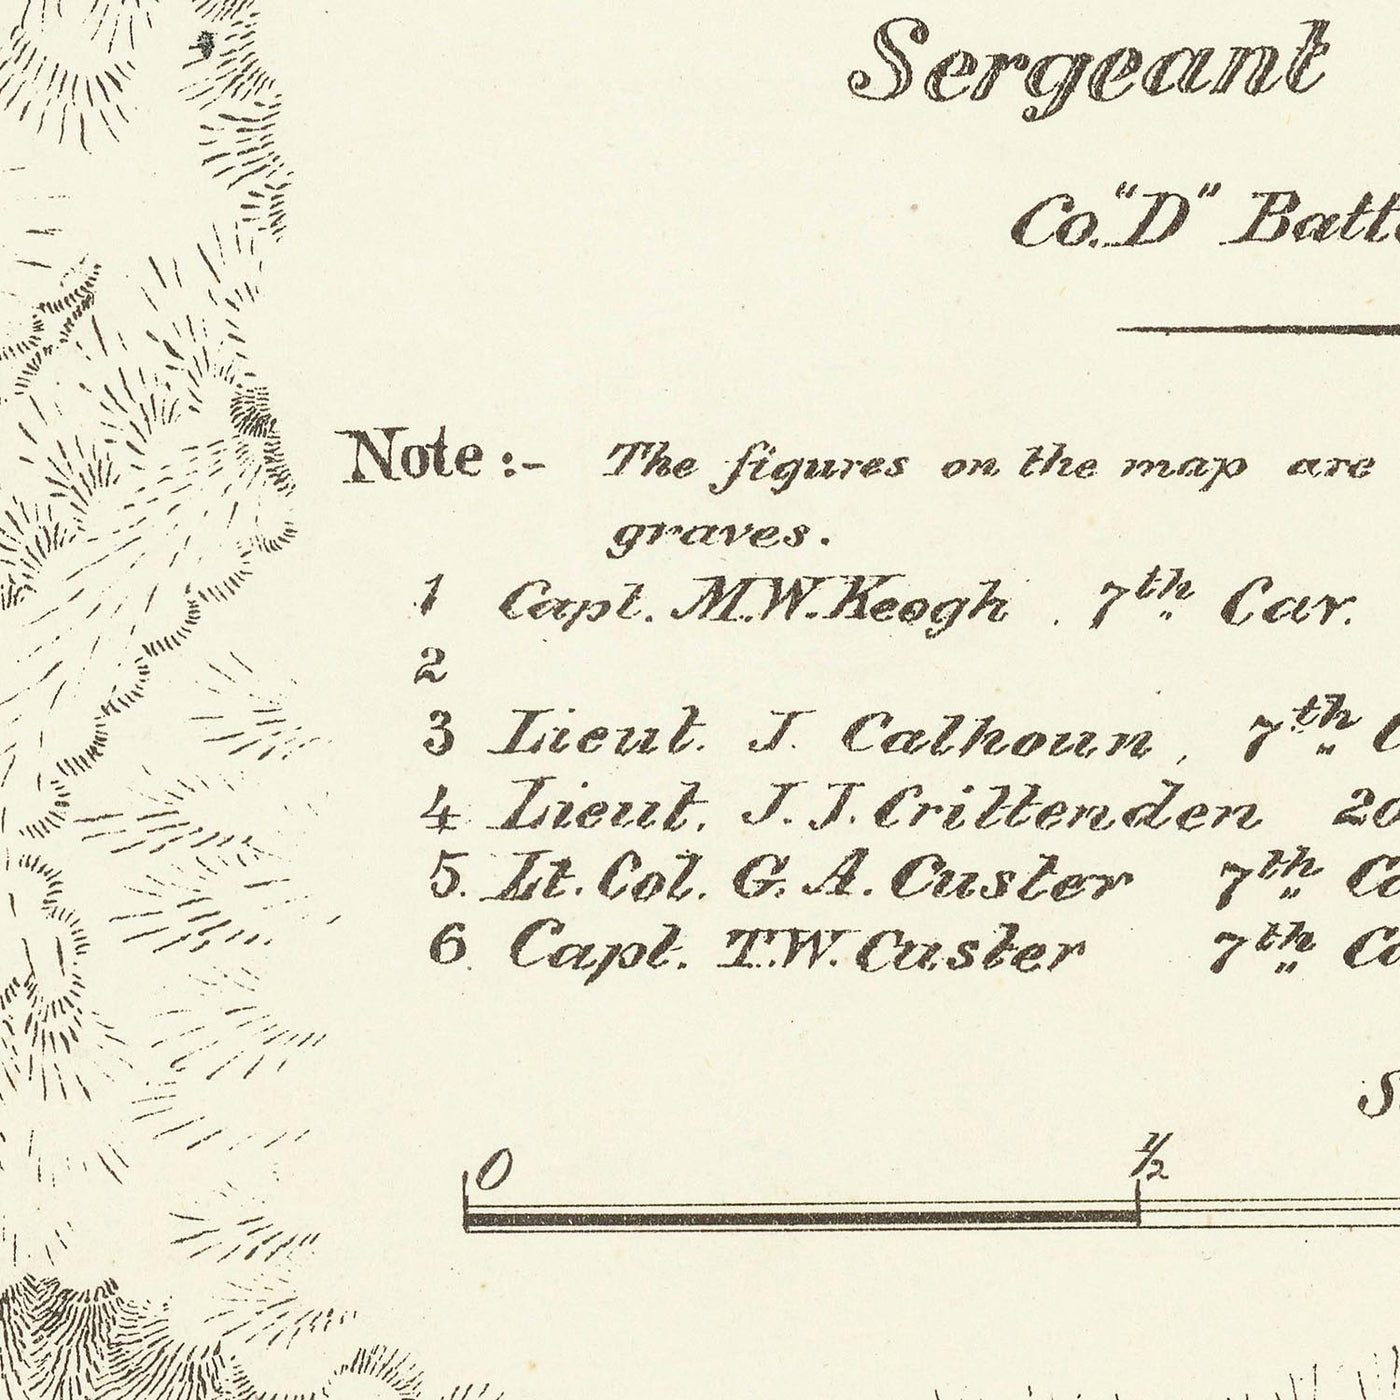 Sergeant
Co. "D"
Note :- The figures on the map are
graves.
1 Capt. M.W. Keogh . 7th Cav.
2
3 Lieut. J. Calhoun, 7th
4 Lieut. J. J. Crittenden 20
5. Lt. Col. G. A. Custer 7th
6. Capt. T.W. Custer 7th
0 1/2